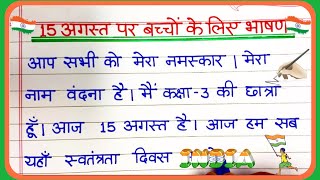 15 अगस्त पर बच्चों के लिए भाषण
आप सभी को मेरा नमस्कार । मेरा
नाम वंदना है । मैं कक्षा-3 की छात्रा
हूँ । आज 15 अगस्त है । आज हम सब
यहाँ स्वतंत्रता दिवस INDIA